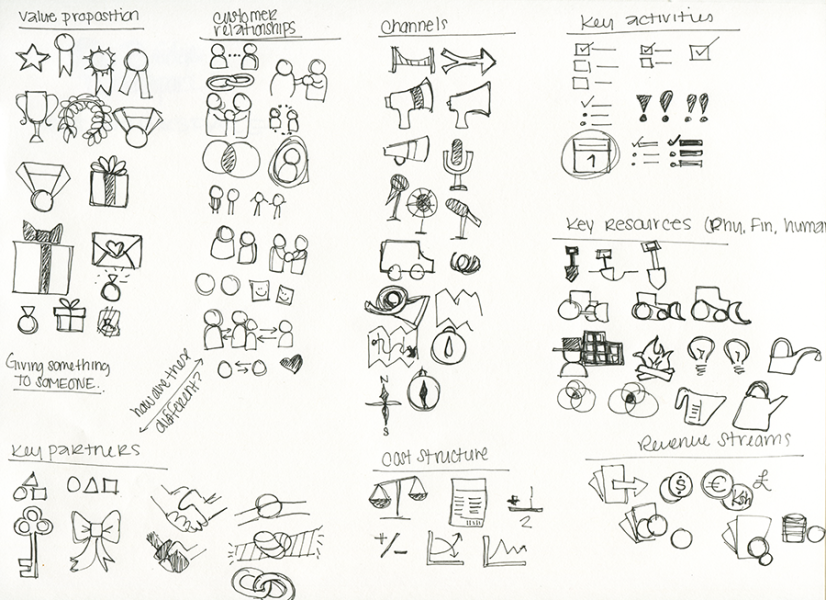 Value proposition
Giving something
TO SOMEONE.
Customer
relationships
how are these
different?
Channels
N
S
Key activities
1
Key Resources (Phy, Fin, human
Key partners
Cost structure
+/-
2
Revenue Streams
$
€
£
Ksh